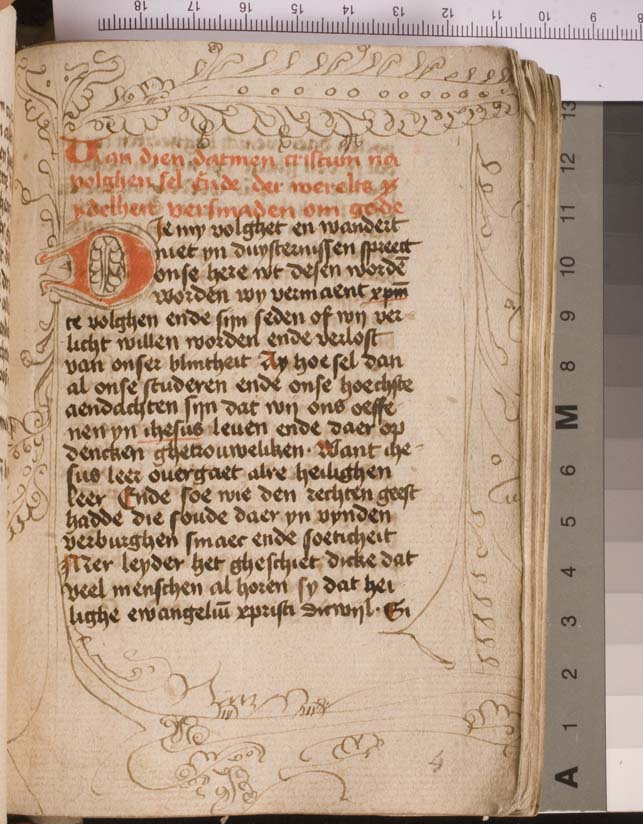 Van dien datmen cristum na
volghen sel Ende der werelts ÿ
ydelheit versmaden om gode
Die my volghet en wandert
niet yn duysternissen spreect
onse here wt desen wordē
worden wy vermaent xpm̄
te volghen ende sijn seden of wij ver
licht willen worden ende verlost
van onser blintheit Ay hoe sel dan
al onse studeren ende onse hoechste
aendachten sijn dat wij ons oeffe
nen yn ihesus leuen ende daer op
dencken ghetrouweliken. Want ihe-
sus leer ouergaet alre heilighen
leer Ende soe wie den rechten geest
hadde die soude daer yn vynden
verburghen smaec ende soeticheit
Mer leyder het gheschiet dicke dat
veel menschen al horen sy dat hei
lighe ewangeliū xpristi dicwijl. Si
4
18 17 16 15 14 13 12 11 10 9 8
13
12
11
10
9
8
M
6
5
4
3
2
1
A